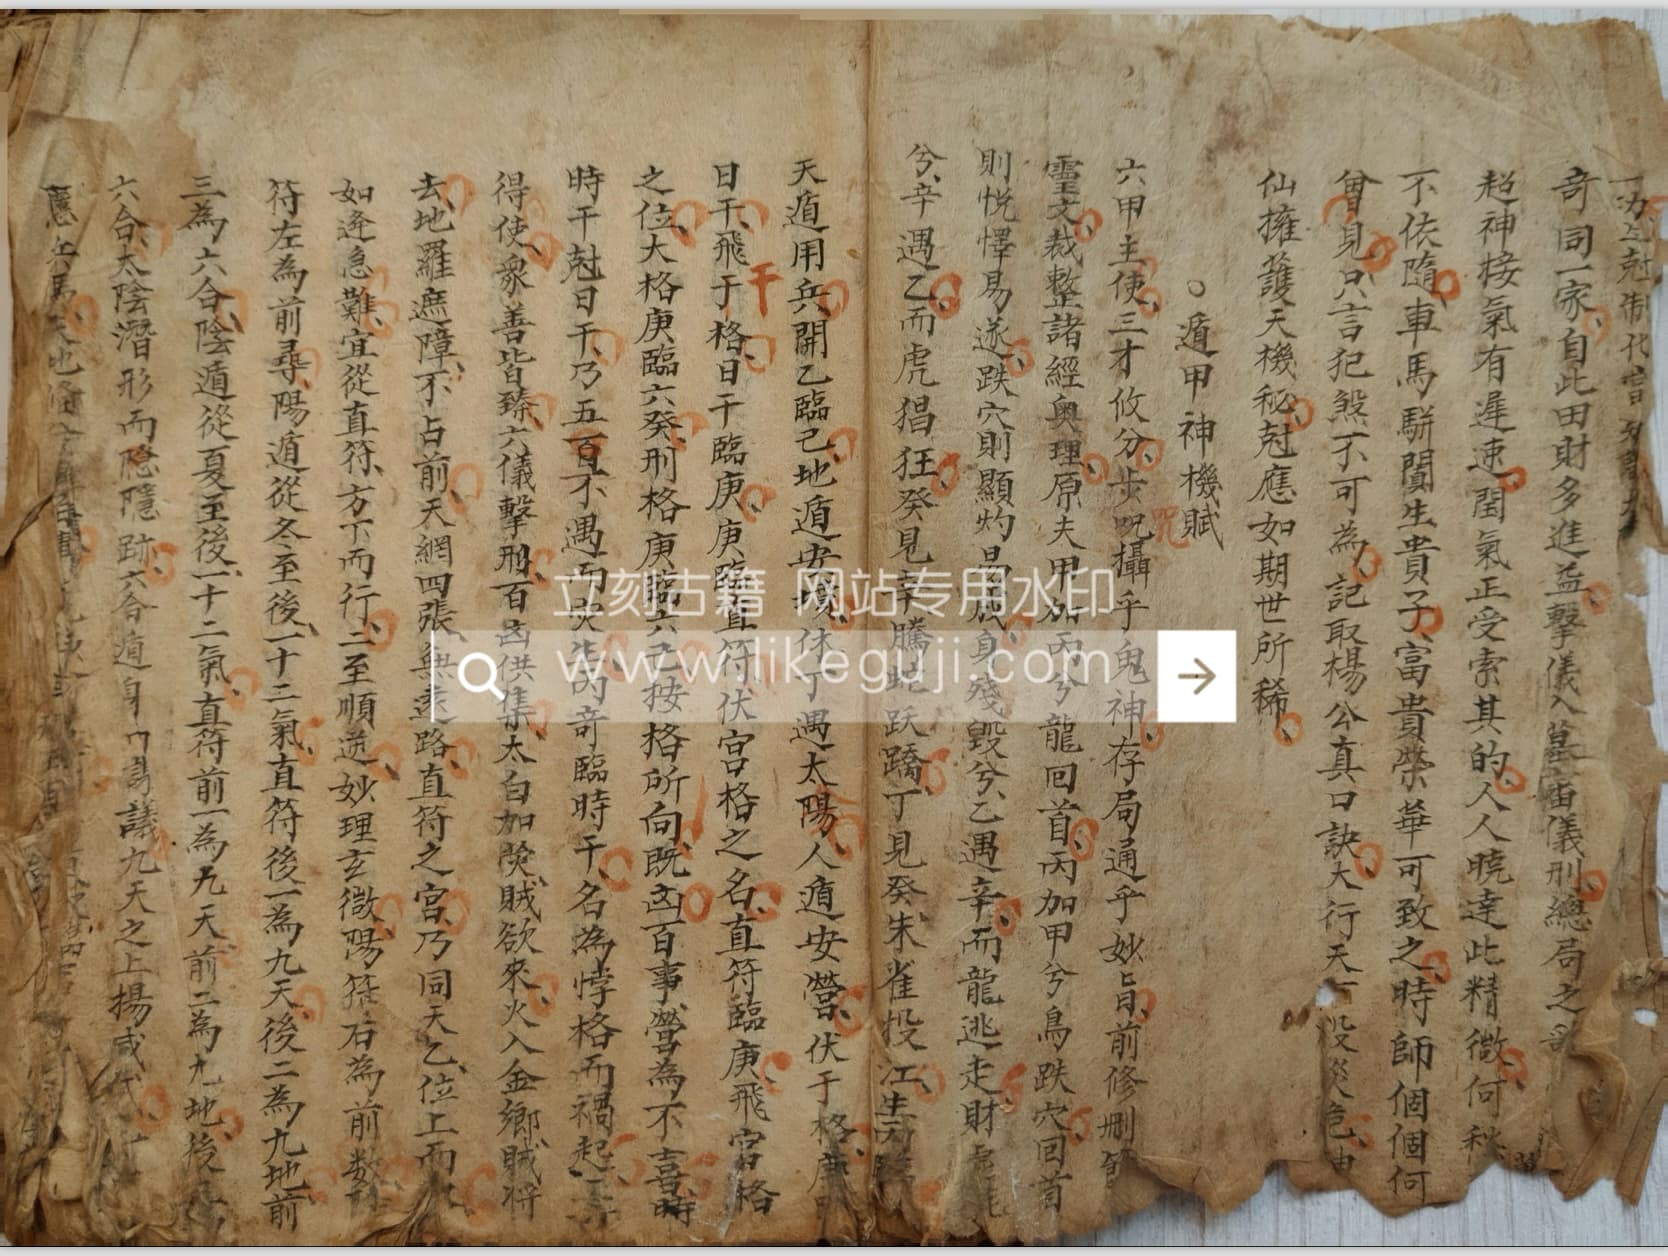 奇同一家自此田財多進益擊儀入墓宙儀刑總局之
超神接氣有遲速閏氣正受索其的人人曉達此精微何
不依隨車馬駢闐生貴子富貴榮華可致之時師個個何
曾見只言犯煞不可為記取楊公真口訣大行天
仙擁護天機秘尅應如期世所稀
遁甲神機賦
六甲主使三才攸分步呪攝乎鬼神存局通乎妙旨前修刪
咒
靈文裁整諸經奧理原夫甲加丙兮龍回首丙加甲兮鳥跌穴回首
則悅懌易遂跌穴則顯灼易成身殘毀兮乙遇辛而龍逃走財
兮辛遇乙而虎猖狂癸見丁騰蛇跃蹻丁見癸朱雀投江生
天遁用兵開乙臨己地遁安墳休丁遇太陽人遁安營伏于格庚
日干飛于格日干臨庚庚臨直符伏宮格之名直符臨庚飛宮格
干
之位大格庚臨六癸刑格庚臨六己按格所向既凶百事營為不喜時
時干尅日干乃五百不遇而災生丙奇臨時干名為悖格而禍起三
得使衆善皆臻六儀擊刑百凶供集太白加熒賊欲來火入金鄉賊將
去地羅遮障不占前天網四張無遠路直符之宮乃同天乙位上而
如逢急難宜從直符方下而行二至順逆妙理玄微陽符右為前数
符左為前尋陽遁從冬至後一十二氣直符後一為九天後二為九地前
三為六合陰遁從夏至後一十二氣直符前一為九天前二為九地後
六合太陰潛形而隐隱跡六合遁身謀議九天之上揚威
立刻古籍 网站专用水印
www.likeguji.com